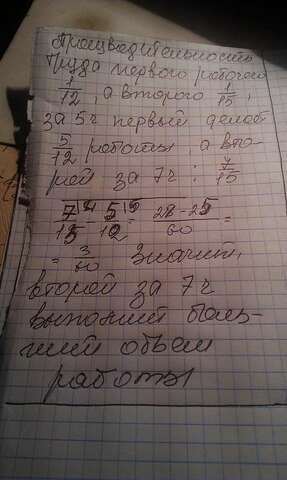 Производительность
труда первого рабочего
1/12, а второго 1/15,
за 5ч первый делал
5/12 работы, а вто-
рой за 7ч : 7/15
7/15 - 5/12 = 28-25/60 =
= 3/60 Значит,
второй за 7ч
выполнил боль-
ший объем
работы